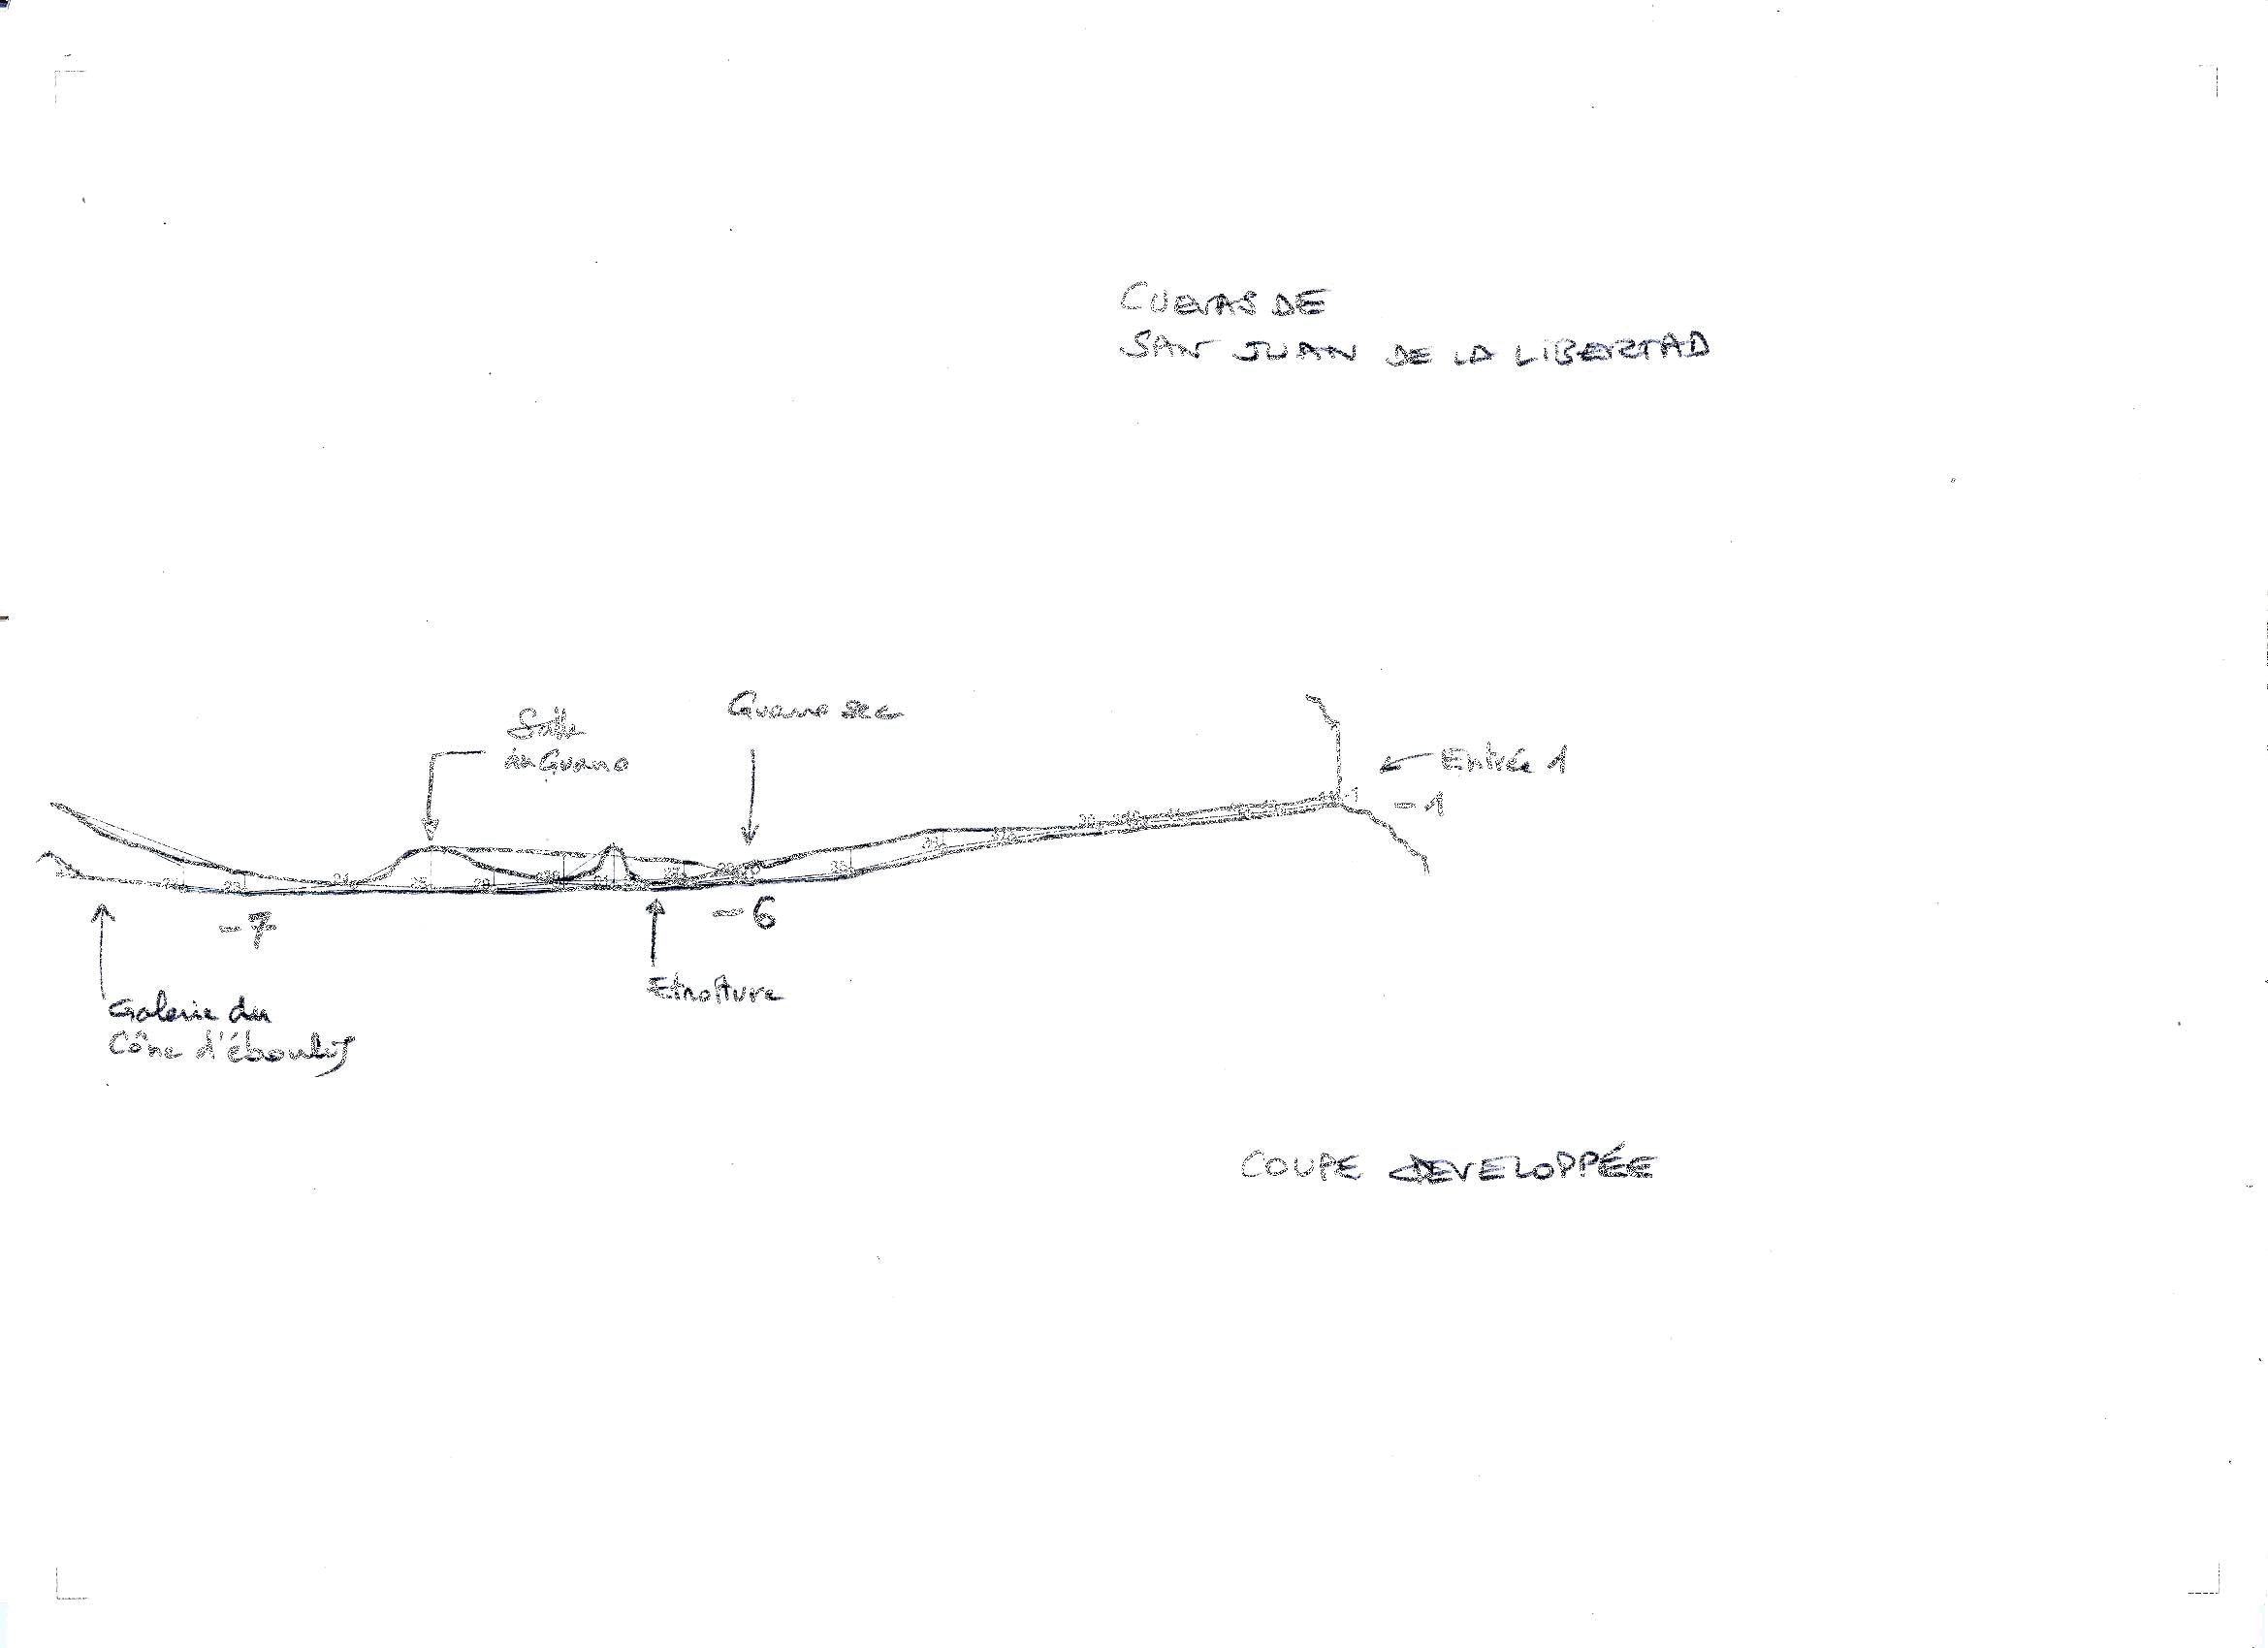 CUEVAS DE
SAN JUAN DE LA LIBERTAD
Salle
du Guano
Guano sec
Entrée 1
-1
-7
-6
Etroiture
Galerie du
Cône d'éboulis
COUPE DEVELOPPÉE